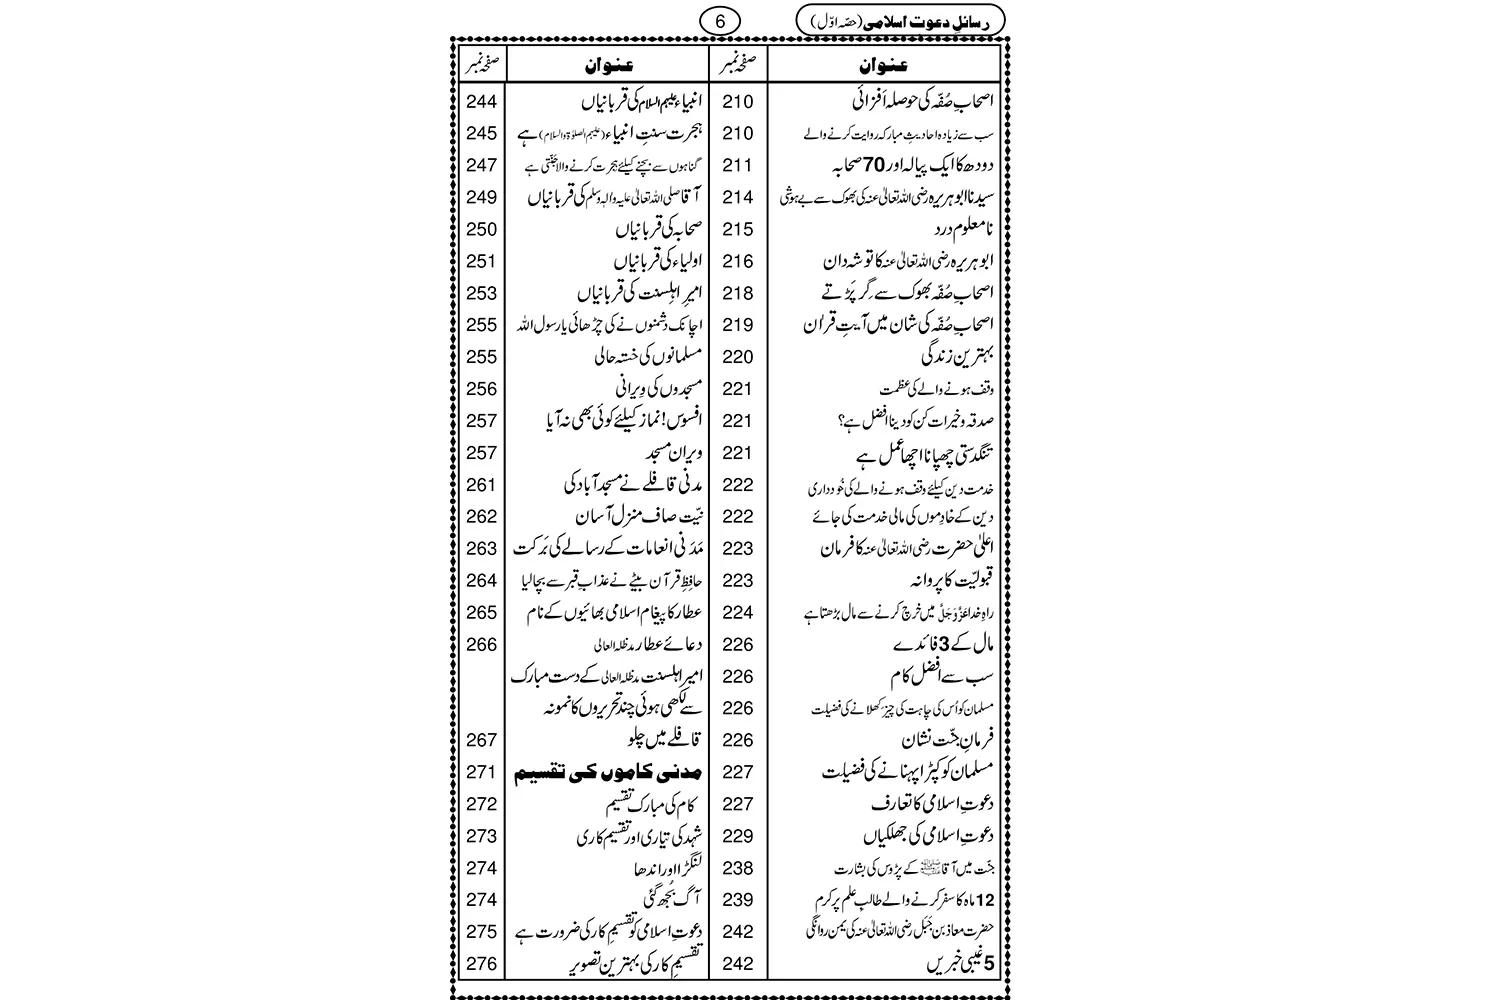 رسائلِ دعوت اسلامی (حصّہ اوّل)
6
عنوان صفحہ نمبر
اصحابِ صُفّہ کی حوصلہ اَفزائی 210
سب سے زیادہ احادیثِ مبارکہ روایت کرنے والے 210
دودھ کا ایک پیالہ اور 70 صحابہ 211
سیدنا ابوہریرہ رضی اللہ تعالیٰ عنہ کی بھوک سے بے ہوشی 214
نامعلوم درد 215
ابوہریرہ رضی اللہ تعالیٰ عنہ کا توشہ دان 216
اصحابِ صُفّہ بھوک سے گِر پَڑتے 218
اصحابِ صُفّہ کی شان میں آیتِ قراٰن 219
بہترین زندگی 220
وقف ہونے والے کی عظمت 221
صدقہ وخیرات کن کو دینا افضل ہے؟ 221
تنگدستی چھپانا اچھا عمل ہے 221
خدمت دین کیلئے وقف ہونے والے کی خُودداری 222
دین کے خادِموں کی مالی خدمت کی جائے 222
اعلیٰ حضرت رضی اللہ تعالیٰ عنہ کا فرمان 223
قبولیّت کا پروانہ 223
راہِ خدا عَزَّوَجَلَّ میں خرچ کرنے سے مال بڑھتا ہے 224
مال کے 3 فائدے 226
سب سے افضل کام 226
مسلمان کو اُس کی چاہت کی چیز کھلانے کی فضیلت 226
فرمانِ جنّت نشان 226
مسلمان کو کپڑا پہنانے کی فضیلت 227
دعوتِ اسلامی کا تعارف 227
دعوتِ اسلامی کی جھلکیاں 229
جنّت میں آقا ﷺ کے پڑوس کی بشارت 238
12 ماہ کا سفر کرنے والے طالبِ علم پر کرم 239
حضرت معاذ بن جَبَل رضی اللہ تعالیٰ عنہ کی یمن روانگی 242
5 غیبی خبریں 242
عنوان صفحہ نمبر
انبیاء علیہم السلام کی قربانیاں 244
ہجرت سنتِ انبیاء (علیہم الصلوٰۃ والسلام) ہے 245
گناہوں سے بچنے کیلئے ہجرت کرنے والا جَنّتی ہے 247
آقا صلی اللہ تعالیٰ علیہ واٰلہٖ وسلم کی قربانیاں 249
صحابہ کی قربانیاں 250
اولیاء کی قربانیاں 251
امیرِ اہلِسنت کی قربانیاں 253
اچانک دشمنوں نے کی چڑھائی یا رسول اللہ 255
مسلمانوں کی خستہ حالی 255
مسجدوں کی وِیرانی 256
افسوس! نماز کیلئے کوئی بھی نہ آیا 257
ویران مسجد 257
مدنی قافلے نے مسجد آباد کی 261
نیّت صاف منزل آسان 262
مَدَنی انعامات کے رسالے کی بَرَکت 263
حافِظِ قرآن بیٹے نے عذابِ قبر سے بچا لیا 264
عطار کا پیغام اسلامی بھائیوں کے نام 265
دعائے عطار مدظلہ العالی 266
امیر اہلسنت مدظلہ العالی کے دست مبارک
سے لکھی ہوئی چند تحریروں کا نمونہ
قافلے میں چلو 267
مدنی کاموں کی تقسیم 271
کام کی مبارک تقسیم 272
شہد کی تیّاری اور تقسیم کاری 273
لنگڑا اور اندھا 274
آگ بُجھ گئی 274
دعوتِ اسلامی کو تقسیمِ کار کی ضرورت ہے 275
تقسیمِ کار کی بہترین تصویر 276